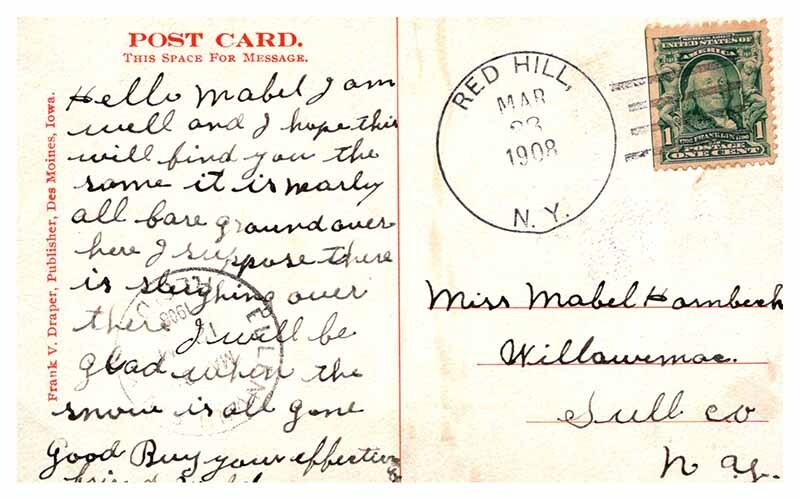 POST CARD.
THIS SPACE FOR MESSAGE.
Frank V. Draper, Publisher, Des Moines, Iowa.
Hello Mabel I am
well and I hope this
will find you the
same it is nearly
all bare ground over
here I suppose there
is sleighing over
there I will be
glad when the
snow is all gone
Good Buy your effective
friend
1908
RED HILL,
MAR
23
1908
N. Y.
SERIES 1902
UNITED STATES OF
AMERICA
1 FRANKLIN 1
POSTAGE
ONE CENT
Miss Mabel Hornbeck
Willowemoc.
Sull co
N y.